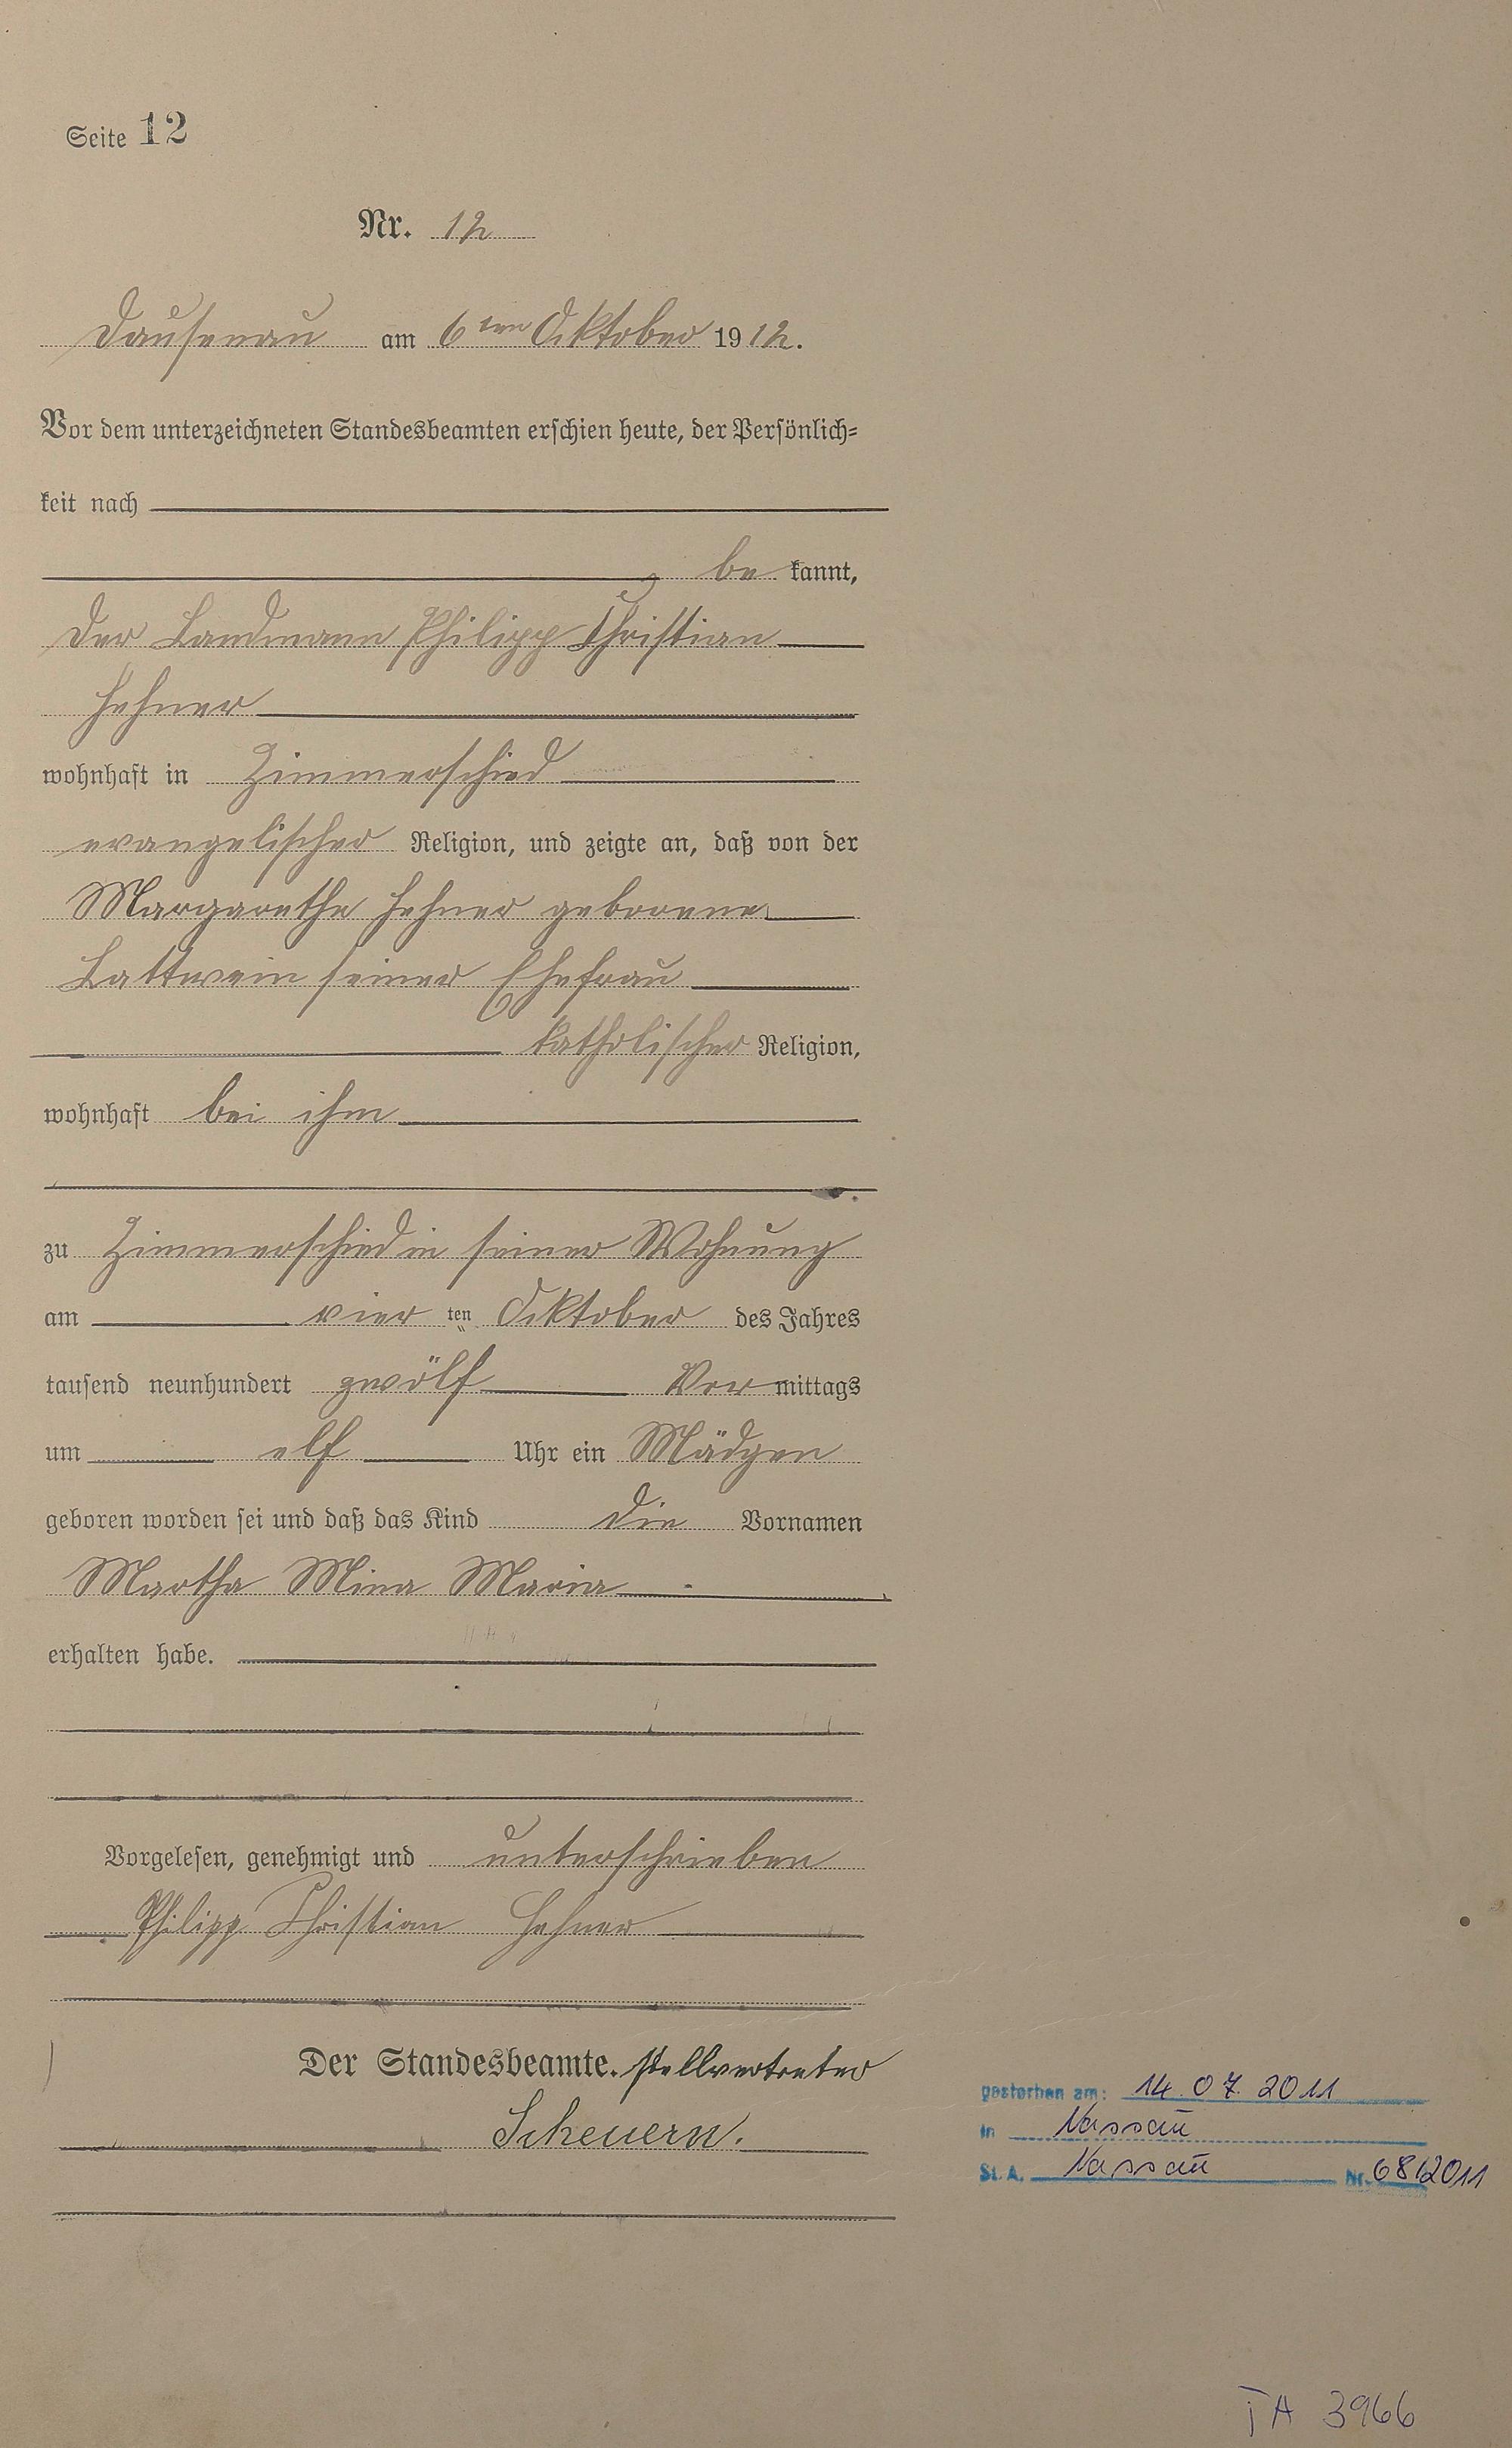 Seite 12
Nr. 12
Dausenau am 6ten Oktober 1912.
Vor dem unterzeichneten Standesbeamten erschien heute, der Persönlich=
keit nach
be kannt,
der Landmann Philipp Christian
Hehner
wohnhaft in Zimmerschied
evangelischer Religion, und zeigte an, daß von der
Margarethe Hehner geborene
Lattwein seiner Ehefrau
katholischer Religion,
wohnhaft bei ihm
zu Zimmerschied in seiner Wohnung
am vier ten Oktober des Jahres
tausend neunhundert zwölf Vor mittags
um elf Uhr ein Mädgen
geboren worden sei und daß das Kind die Vornamen
Martha Mina Maria
erhalten habe.
Vorgelesen, genehmigt und unterschrieben
Philipp Christian Hehner
Der Standesbeamte. stellvertreter
Scheuern.
gestorben am: 14.07.2011
in Nassau
St. A. Nassau Nr. 68/2011
TA 3966